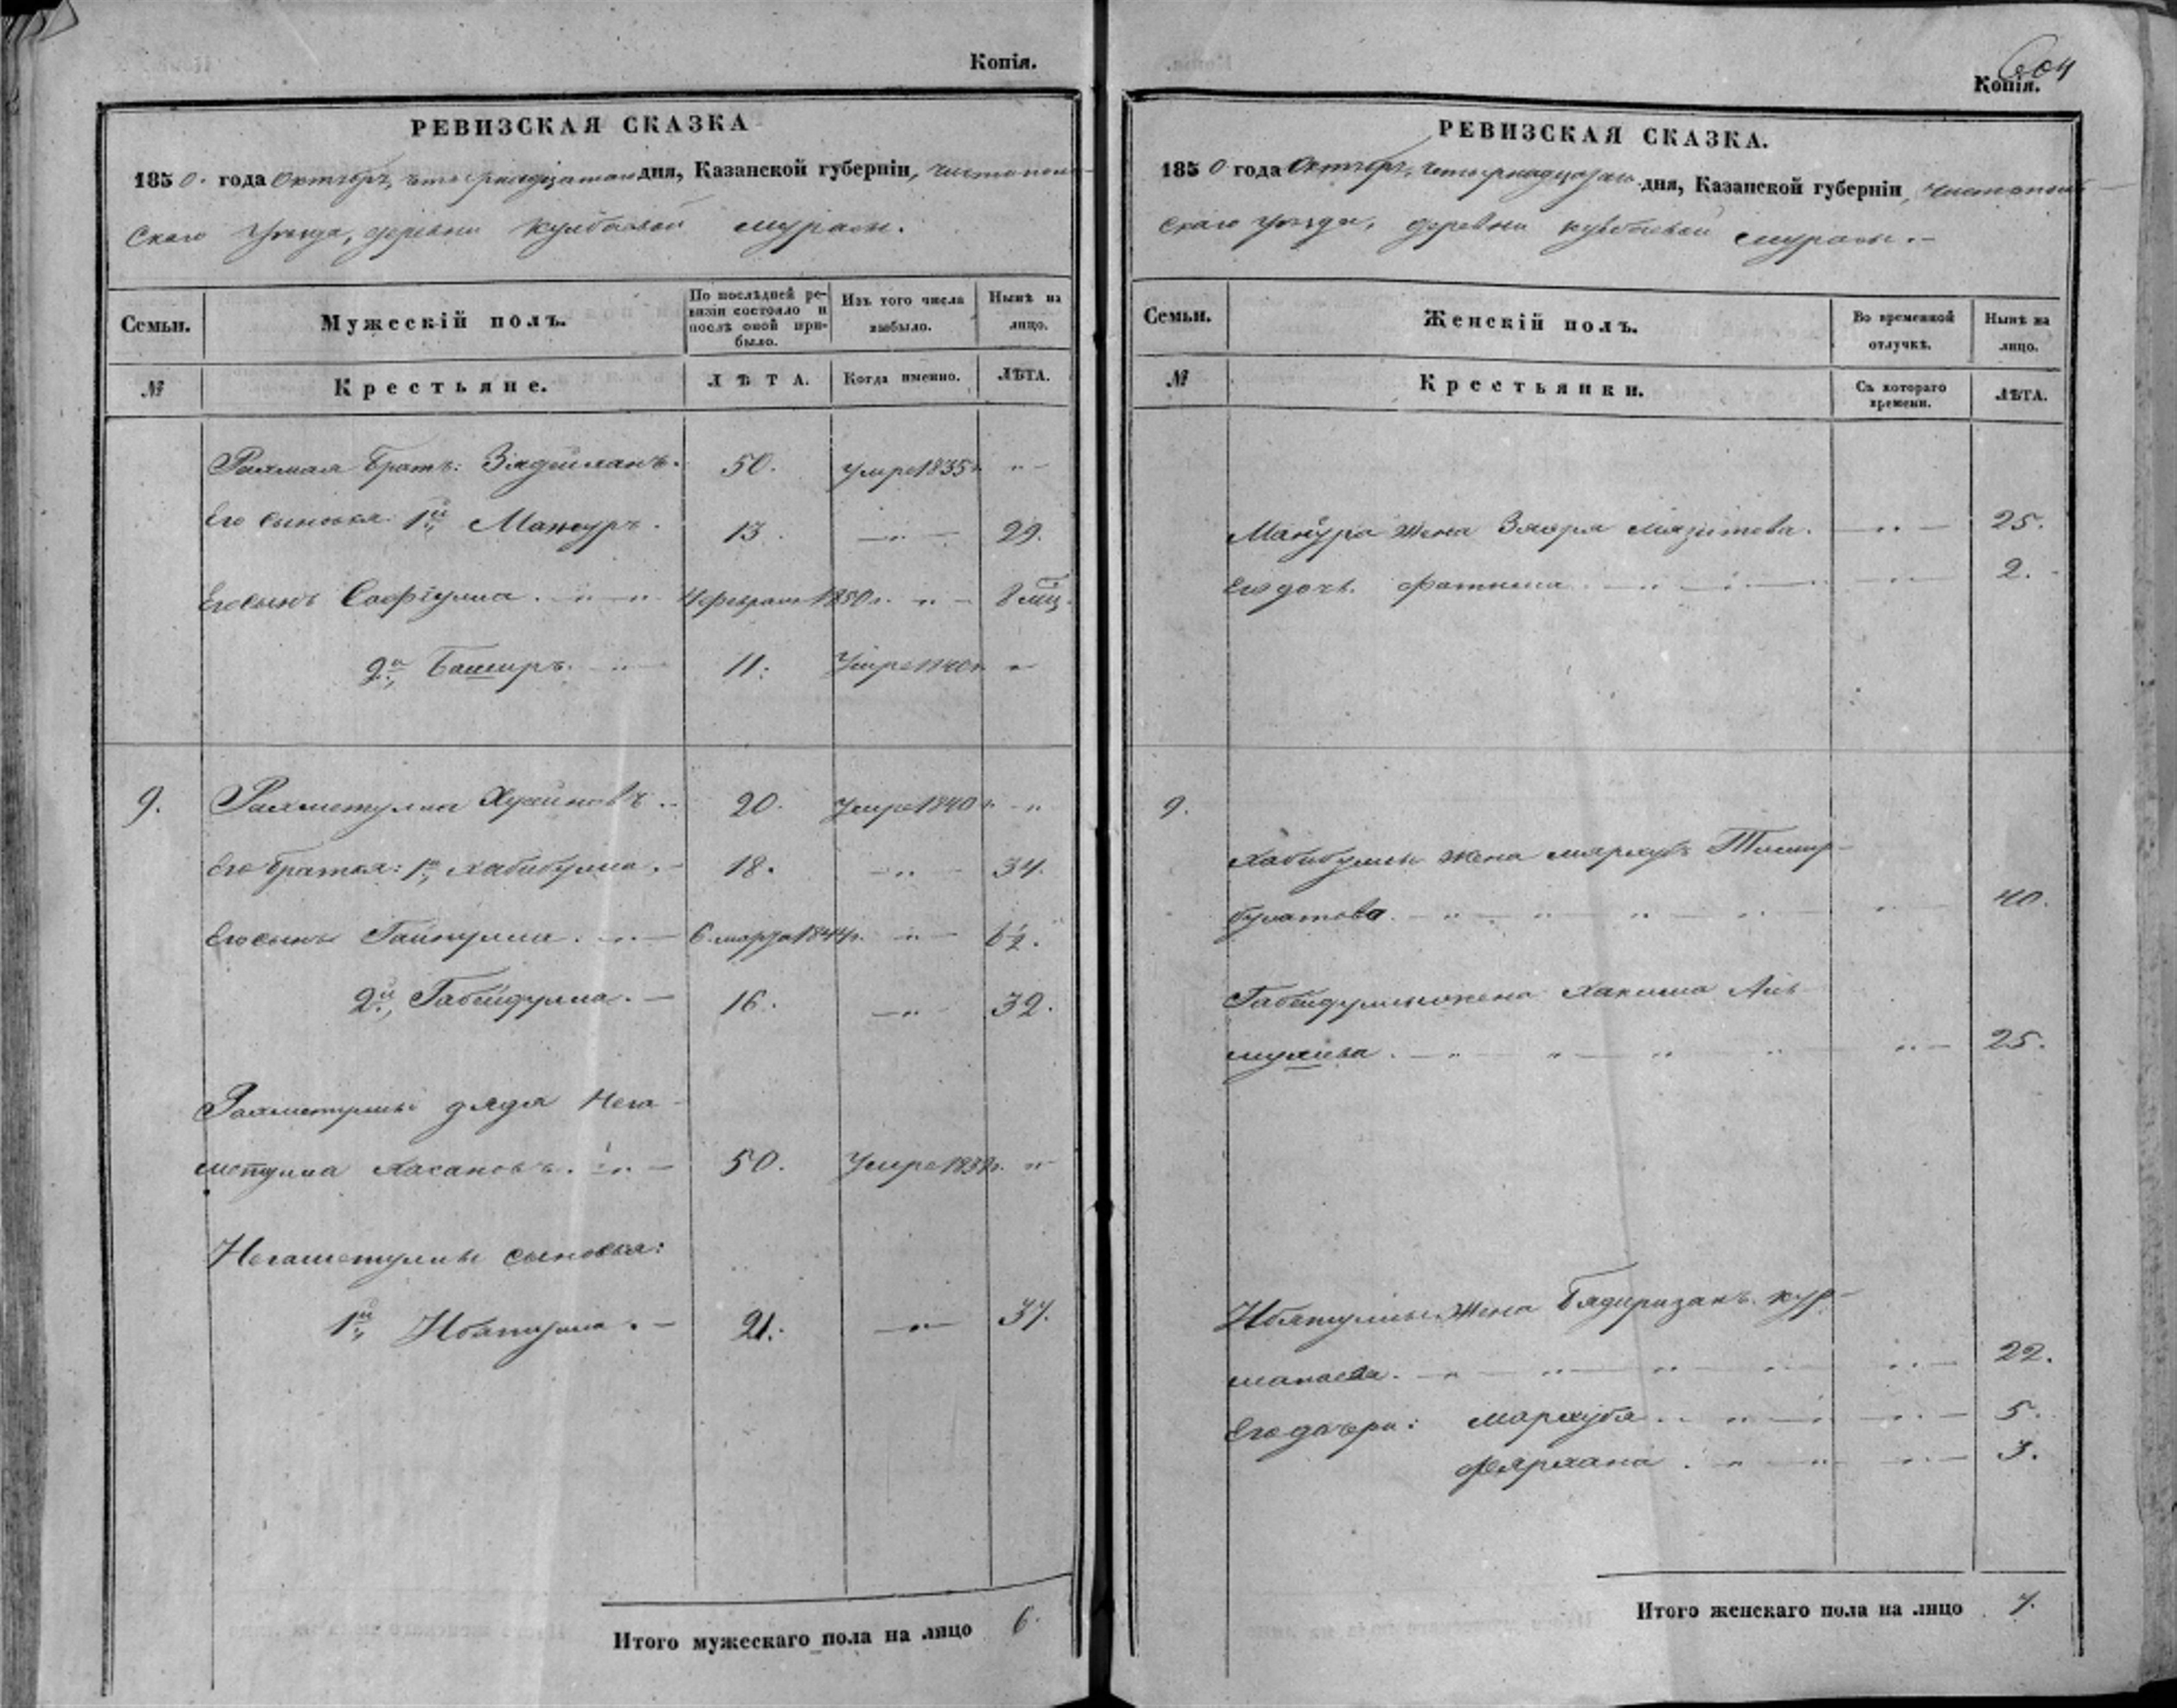 Копія.
РЕВИЗСКАЯ СКАЗКА
1850. года Октября, четырнадцатаго дня, Казанской губерніи, Чистополь-
скаго уѣзда, деревни Кулбаевой Мурасы.
Семьи.
Мужескій полъ.
По послѣдней ре-
визіи состояло и
послѣ оной при-
было.
Изъ того числа
выбыло.
Нынѣ на
лицо.
№
Крестьяне.
ЛѢТА.
Когда именно.
ЛѢТА.
братъ: 50. умре 1835 г. „ —
Его сыновья 1й, Мансуръ. 13. — „ — 29.
Его сынъ Сафіулла. — „ — „ 4 февраля 1850 г. „ — 8 мѣц.
2й, Баширъ. „ — 11. Умре 1840 г. „
9. Рахметулла Хусаиновъ. 20. Умре 1840 г. — „
Его братья: 1й, Хабибулла. — 18. — „ — 34.
Его сынъ Гайнулла. — „ — 6 марта 1844 г. — „ — 6½.
2й, Габейдулла. — 16. — „ — 32.
Рахметуллы дядя Нега-
метулла Хасановъ. — „ — 50. Умре г. „
Негаметуллы сыновья:
1й, Ибатулла. — 21. — „ — 37.
Итого мужескаго пола на лицо 6.
604
Копія.
РЕВИЗСКАЯ СКАЗКА.
1850 года Октября, четырнадцатаго дня, Казанской губерніи, Чистополь-
скаго уѣзда, деревни Кулбаевой Мурасы. —
Семьи.
Женскій полъ.
Во временной
отлучкѣ.
Нынѣ на
лицо.
№
Крестьянки.
Съ котораго
времени.
ЛѢТА.
Мансура жена Зюгря Мязитова. — „ — 25.
Его дочь. Фатима. — „ — „ — „ — 2.
9.
Хабибуллы жена Мархуба Тимир-
булатова. — „ — „ — „ — „ — 40.
Габейдуллы жена Хакима Аль-
мухиева. — „ — „ — „ — „ — 25.
Ибятуллы жена Бядигизанъ Кур-
манаева. — „ — „ — „ — „ — 22.
Его дочери: Мархуба. „ — „ — „ — 5.
Фярхана. — „ — „ — „ — 3.
Итого женскаго пола на лицо 7.